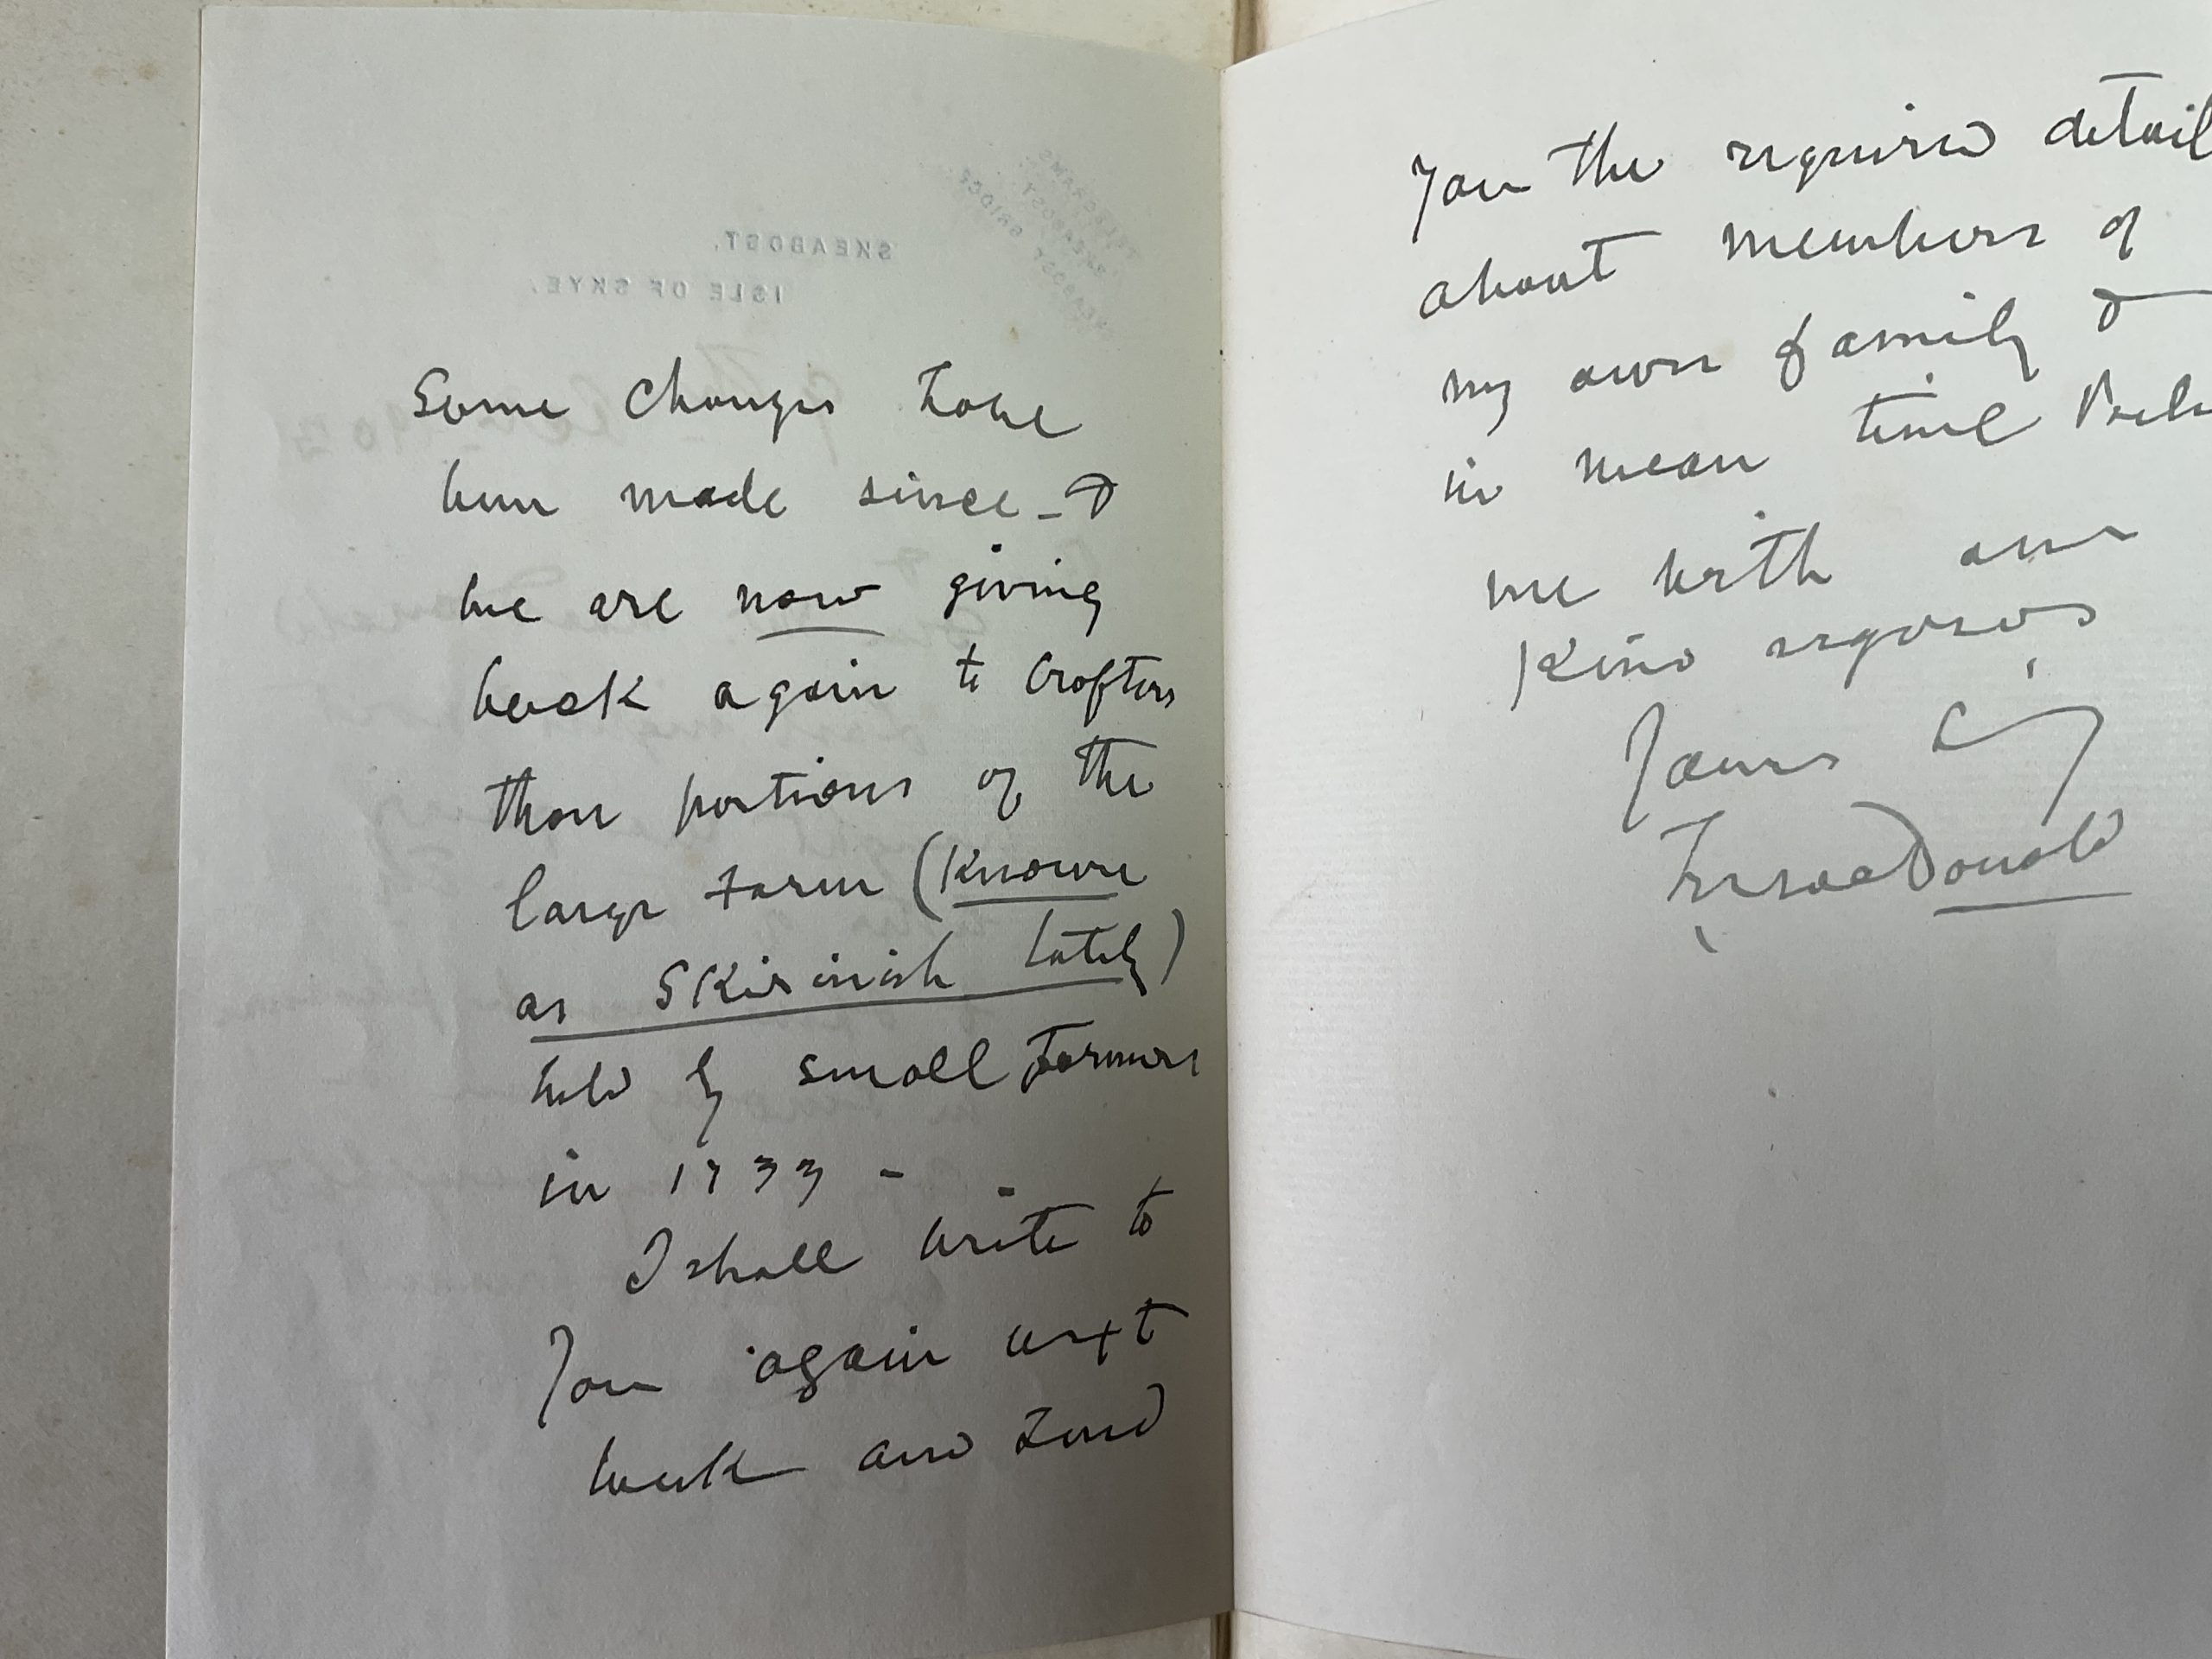 SKEABOST,
ISLE OF SKYE.
TELEGRAMS
SKEABOST BRIDGE
Some changes have
been made since - &
we are now giving
back again to Crofters
those portions of the
large farm (Known
as Skirinish lately)
held by small farmers
in 1733 -
I shall write to
you again next
week and send
you the required detail
about members of
my own family &
in mean time
me with
Kind regards
Yours
MacDonald